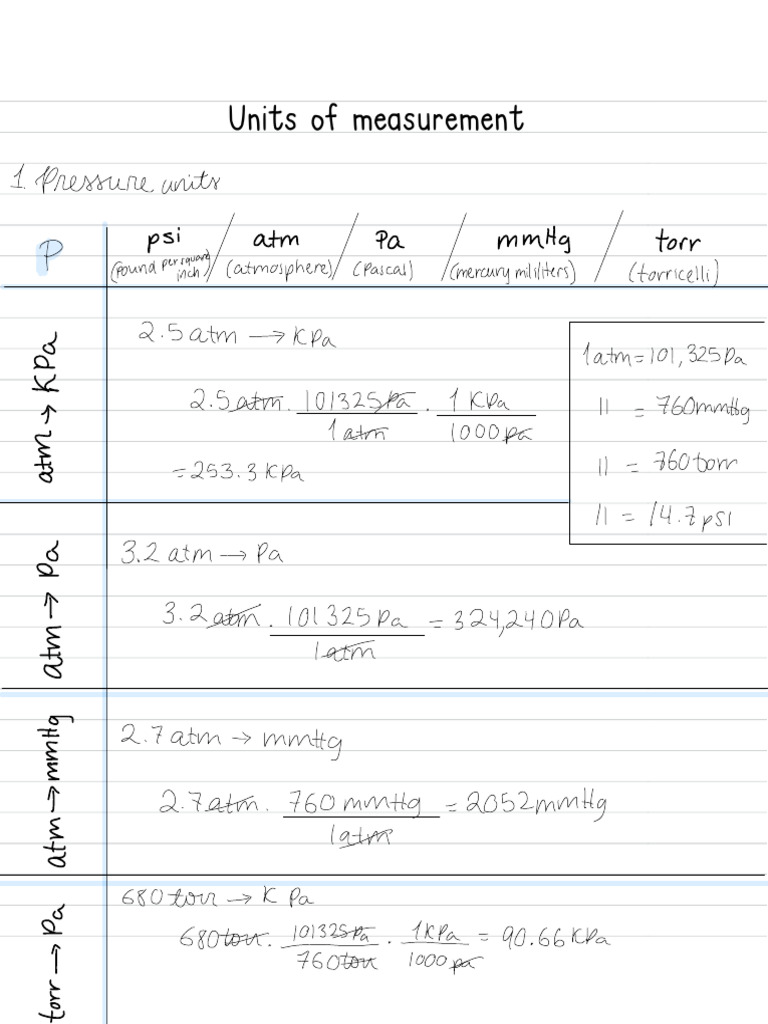 Units of measurement
1. Pressure units
P
psi / atm / Pa / mmHg / torr
(pound per square inch) / (atmosphere) / (Pascal) / (mercury mililiters) / (torricelli)
atm → KPa
2.5 atm → KPa
2.5 atm · 101325 Pa / 1 atm · 1 KPa / 1000 pa
= 253.3 KPa
1 atm = 101,325 Pa
11 = 760 mmHg
11 = 760 torr
11 = 14.7 psi
atm → Pa
3.2 atm → Pa
3.2 atm · 101325 Pa / 1 atm = 324,240 Pa
atm → mmHg
2.7 atm → mmHg
2.7 atm · 760 mmHg / 1 atm = 2052 mmHg
torr → Pa
680 torr → K Pa
680 torr · 101325 Pa / 760 torr · 1 KPa / 1000 pa = 90.66 KPa